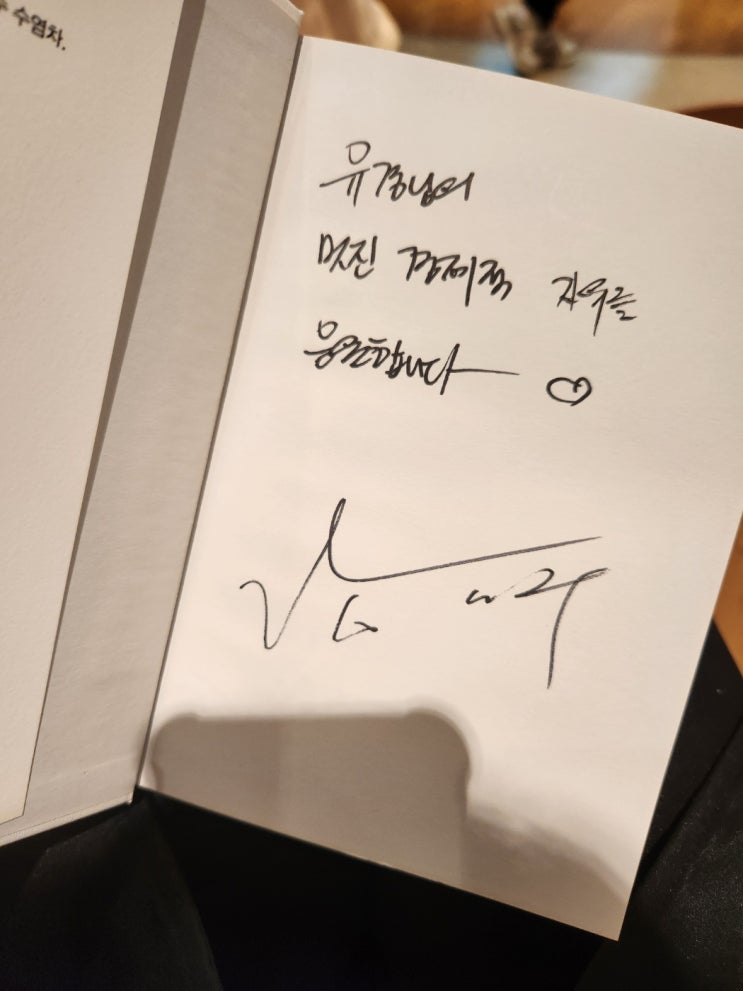 수염차.
유경님의
멋진 경제적 자유를
응원합니다 ♡